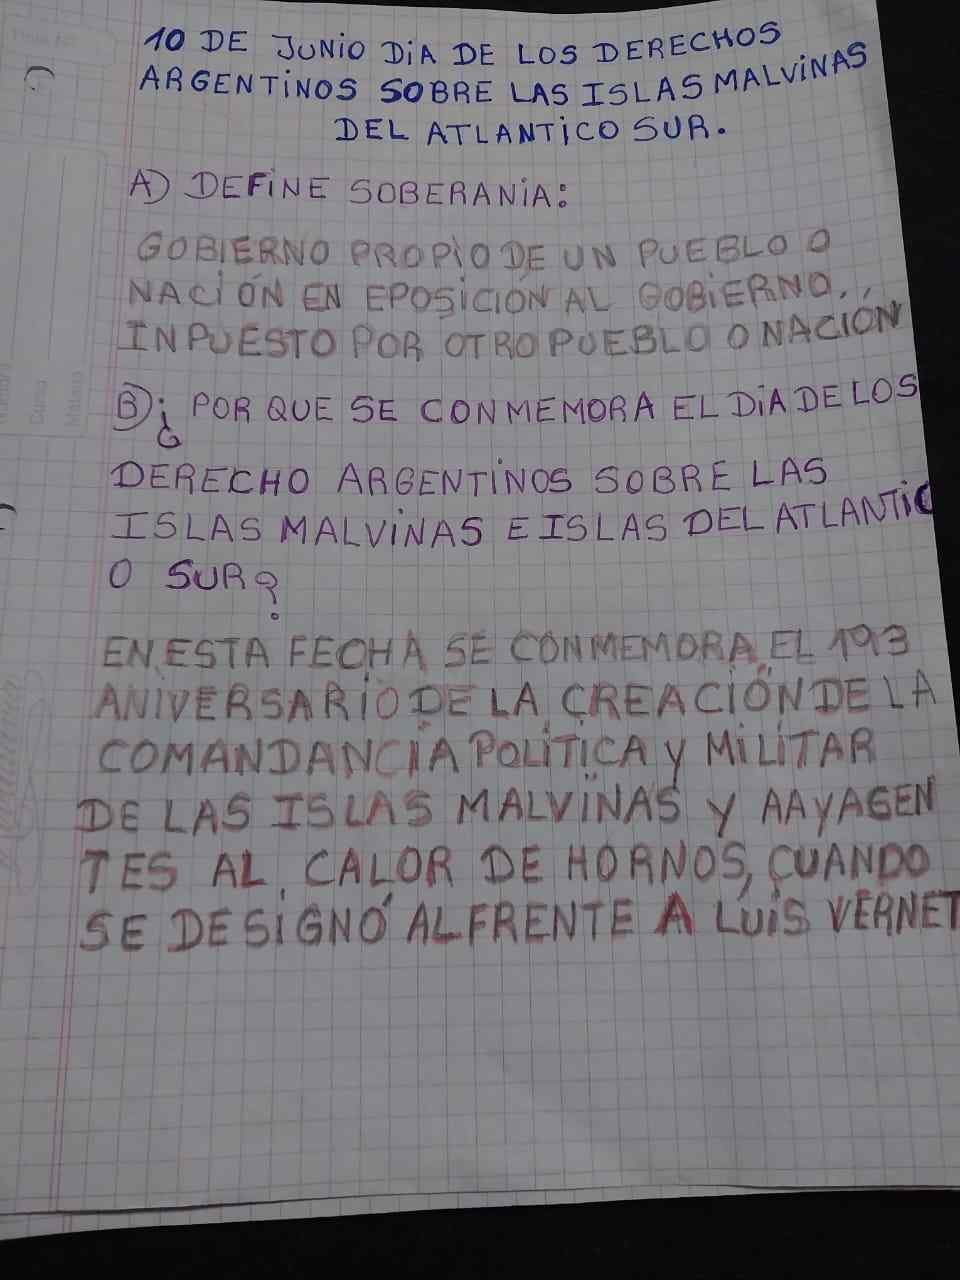 10 DE JUNIO DíA DE LOS DERECHOS
ARGENTINOS SOBRE LAS ISLAS MALVINAS
DEL ATLANTICO SUR.
A) DEFINE SOBERANIA:
GOBIERNO PROPIO DE UN PUEBLO O
NACIÓN EN EPOSICIÓN AL GOBIERNO.
INPUESTO POR OTRO PUEBLO O NACIÓN
B) ¿ POR QUE SE CONMEMORA EL DíA DE LOS
DERECHO ARGENTINOS SOBRE LAS
ISLAS MALVINAS E ISLAS DEL ATLANTIC
O SUR?
EN ESTA FECHA SE CONMEMORA EL 193
ANIVERSARIO DE LA CREACIÓN DE LA
COMANDANCIA POLÍTICA Y MILITAR
DE LAS ISLAS MALVINAS Y AAYAGEN
TES AL CALOR DE HORNOS, CUANDO
SE DESIGNÓ AL FRENTE A LUIS VERNET